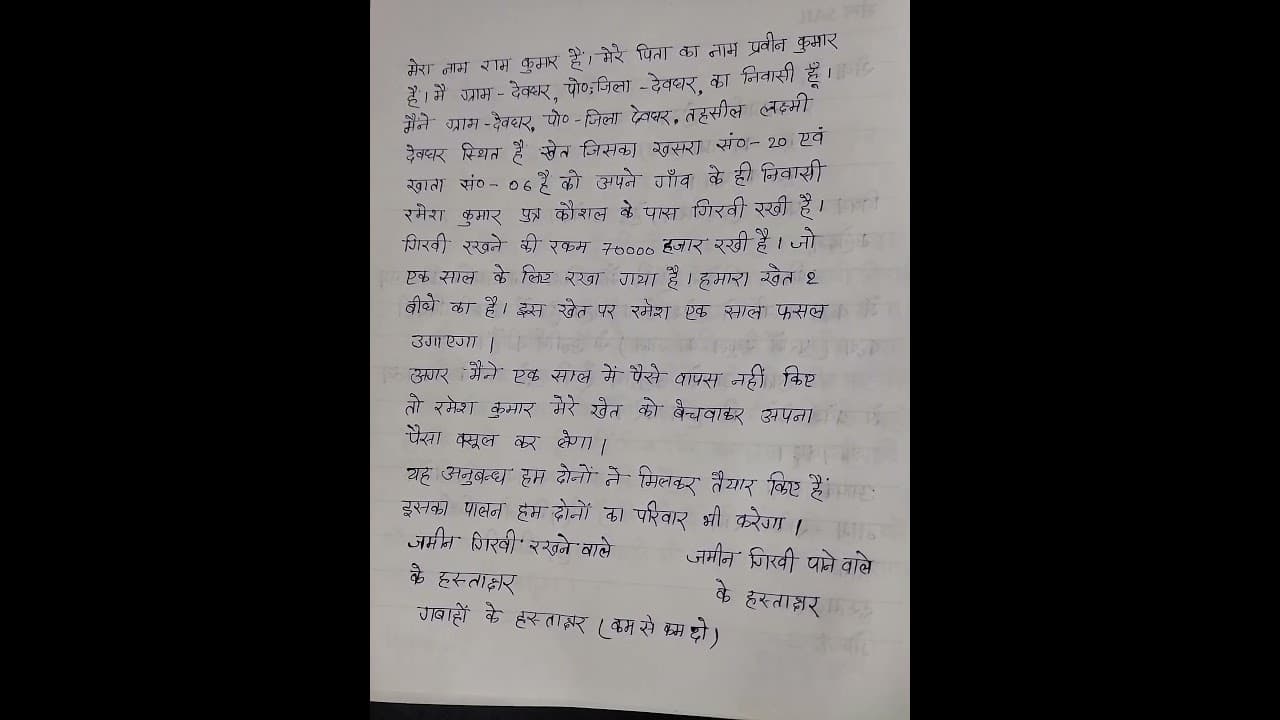 मेरा नाम राम कुमार हैं। मेरे पिता का नाम प्रवीन कुमार
है। मै ग्राम - देवधर, पो०,जिला - देवधर, का निवासी हूँ।
मैने ग्राम-देवधर, पो० -जिला देवधर, तहसील लक्ष्मी
देवधर स्थित है खेत जिसका खसरा सं०- 20 एवं
खाता सं०- 06 है को अपने गाँव के ही निवासी
रमेश कुमार पुत्र कौशल के पास गिरवी रखी है।
गिरवी रखने की रकम 70000 हजार रखी है। जो
एक साल के लिए रखा गया है। हमारा खेत 2
बीघे का है। इस खेत पर रमेश एक साल फसल
उगाएगा।
अगर मैने एक साल में पैसे वापस नहीं किए
तो रमेश कुमार मेरे खेत को बेचवाकर अपना
पैसा वसूल कर लेगा।
यह अनुबन्ध हम दोनों ने मिलकर तैयार किए हैं
इसका पालन हम दोनों का परिवार भी करेगा।
जमीन गिरवी रखने वाले जमीन गिरवी पाने वाले
के हस्ताक्षर के हस्ताक्षर
गवाहों के हस्ताक्षर (कम से कम दो)